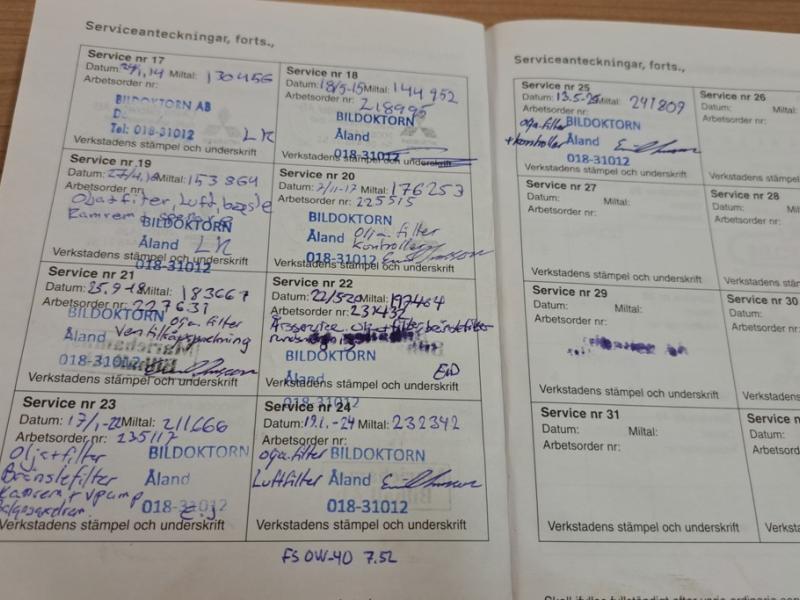 Serviceanteckningar, forts.,
Service nr 17
Datum: 24/1,14 Miltal: 130456
Arbetsorder nr:
BILDOKTORN AB
Tel: 018-31012 LK
Verkstadens stämpel och underskrift
Service nr 18
Datum: 18/5-15 Miltal: 144952
Arbetsorder nr: 218995
BILDOKTORN
Åland
018-31012
Verkstadens stämpel och underskrift
Service nr 19
Datum: Miltal: 153864
Arbetsorder nr:
Olja+filter, Luft,
Kamrem +
BILDOKTORN
Åland LK
018-31012
Verkstadens stämpel och underskrift
Service nr 20
Datum: 7/11-17 Miltal: 176253
Arbetsorder nr: 225515
BILDOKTORN
Åland olja.filter
kontroller
018-31012
Verkstadens stämpel och underskrift
Service nr 21
Datum: 25.9-18 Miltal: 183667
Arbetsorder nr: 227631
BILDOKTORN olja.filter
Åland
018-31012
Verkstadens stämpel och underskrift
Service nr 22
Datum: 22/5-20 Miltal: 197464
Arbetsorder nr: 231432
Årsservice olja+filter, bränslefilter
BILDOKTORN
Åland
018-31012
Verkstadens stämpel och underskrift
Service nr 23
Datum: 17/1-22 Miltal: 211666
Arbetsorder nr: 235117
Olja+filter BILDOKTORN
Bränslefilter Åland
Kamrem + vpump 018-31012
E.J
Verkstadens stämpel och underskrift
Service nr 24
Datum: 19.1.-24 Miltal: 232342
Arbetsorder nr:
olja.filter BILDOKTORN
Luftfilter Åland
018-31012
Verkstadens stämpel och underskrift
FS 0W-40 7.5L
Serviceanteckningar, forts.,
Service nr 25
Datum: 13.5-25 Miltal: 241809
Arbetsorder nr:
olja.filter BILDOKTORN
+kontroller Åland
018-31012
Verkstadens stämpel och underskrift
Service nr 26
Datum: Miltal:
Arbetsorder nr:
Service nr 27
Datum: Miltal:
Arbetsorder nr:
Verkstadens stämpel och underskrift
Service nr 28
Datum:
Arbetsorder nr:
Verkstadens
Service nr 29
Datum: Miltal:
Arbetsorder nr:
Verkstadens stämpel och underskrift
Service nr 30
Datum:
Arbetsorder nr:
Verkstadens
Service nr 31
Datum: Miltal:
Arbetsorder nr:
Verkstadens stämpel och underskrift
Service nr
Datum:
Arbetsorder